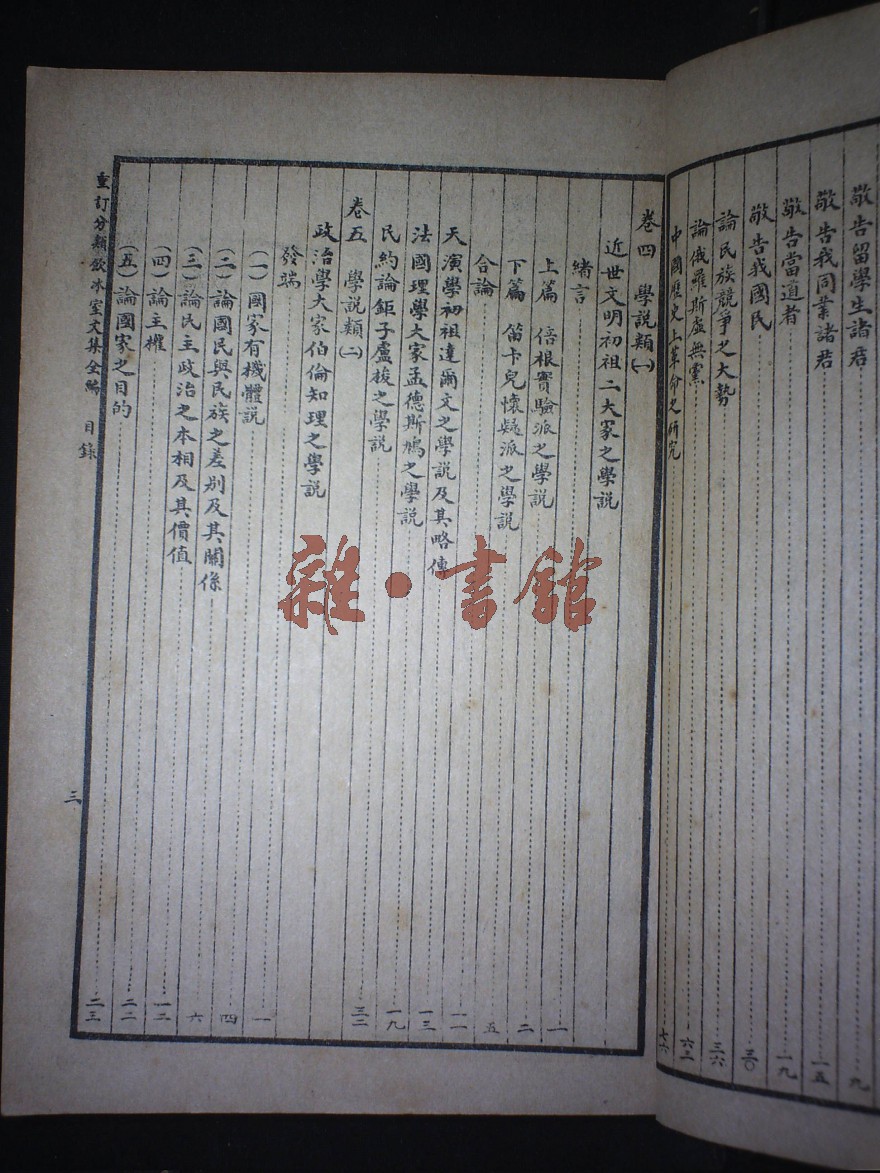 敬告留學生諸君 九
敬告我同業諸君 一五
敬告當道者 一九
敬告我國民 三〇
論民族競爭之大勢 三六
論俄羅斯虛無黨 六二
中國歷史上革命之研究 七六
卷四 學說類(一)
近世文明初祖二大家之學說
緒言 一
上篇 倍根實驗派之學說 一
下篇 笛卡兒懷疑派之學說 二
合論 五
天演學初祖達爾文之學說及其略傳 一一
法國理學大家孟德斯鳩之學說 一三
民約論鉅子盧梭之學說 一九
卷五 學說類(二) 三二
政治學大家伯倫知理之學說
發端 一
(一)國家有機體說 一
(二)論國民與民族之差別及其關係 四
(三)論民主政治之本相及其價值 六
(四)論主權 一二
(五)論國家之目的 二二
重訂分類飲冰室文集全編 目錄 三 二三
雜·書館